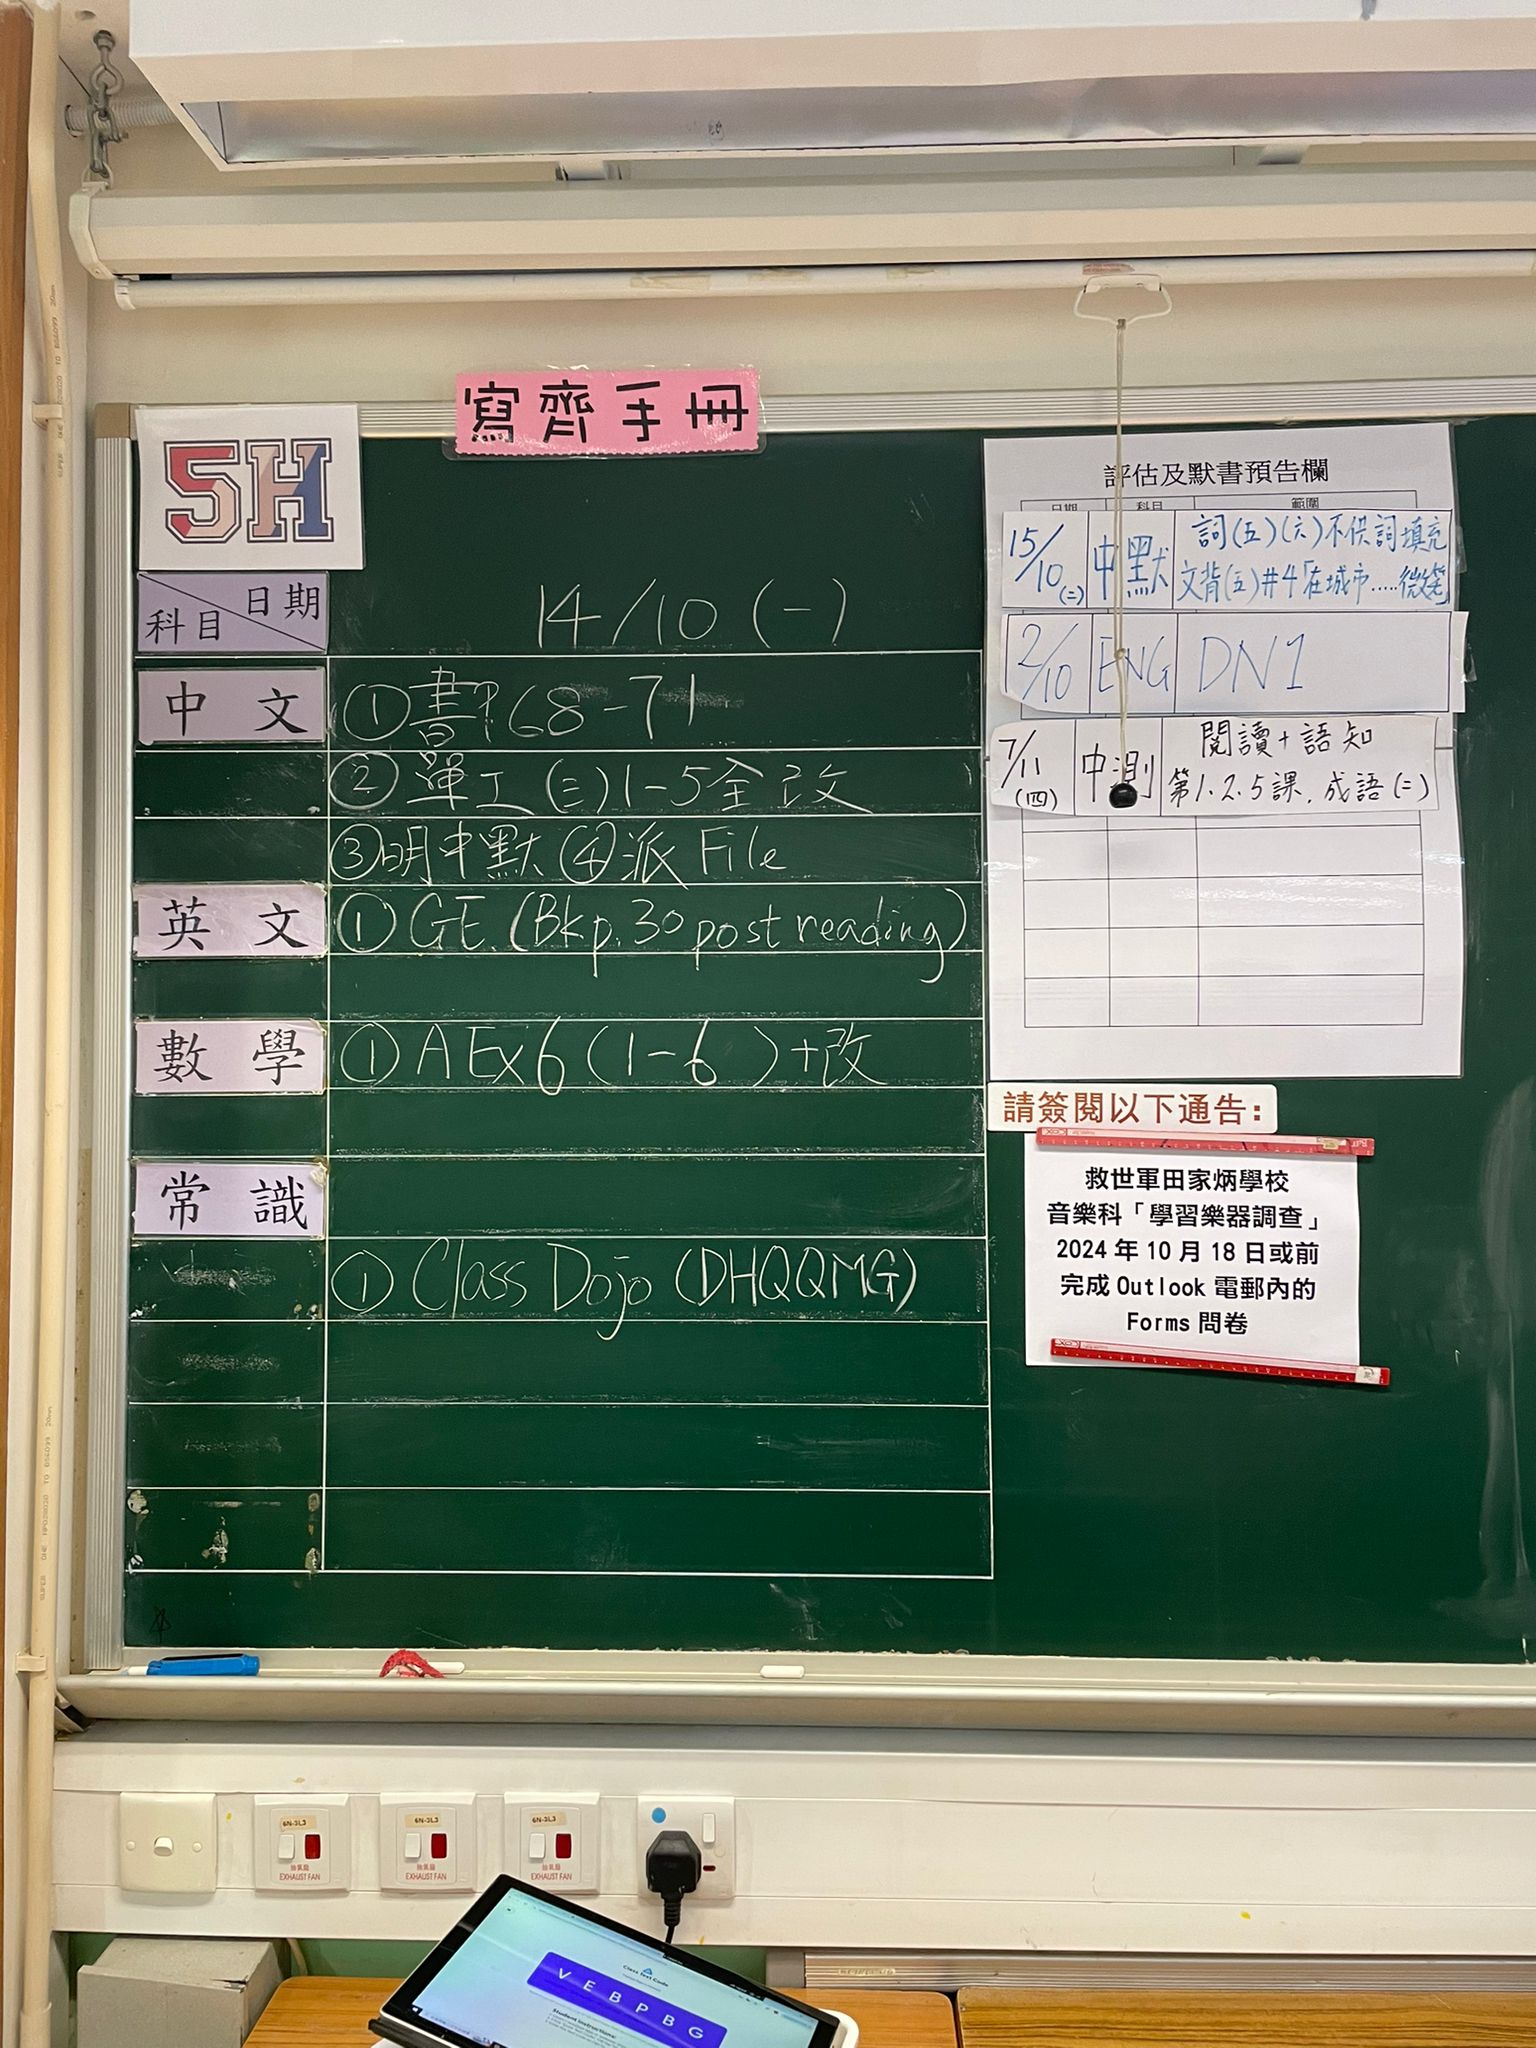 寫齊手冊
5H
日期
科目
14/10 (一)
中文
①書P.68-71
②單工(三)1-5全改
③明中默 ④派 File
英文
① GE (Bk p.30 post reading)
數學
① A Ex 6 (1-6) +改
常識
① Class Dojo (DHQQMG)
評估及默書預告欄
日期 科目 範圍
15/10(二) 中默 詞(五)(六)不供詞填充
文背(五)#4「在城市.....微笑」
2/10 ENG DN1
7/11(四) 中測 閱讀+語知
第1.2.5課,成語(二)
請簽閱以下通告:
救世軍田家炳學校
音樂科「學習樂器調查」
2024 年 10 月 18 日或前
完成 Outlook 電郵內的
Forms 問卷
6N-3L3
抽氣扇
EXHAUST FAN
6N-3L3
抽氣扇
EXHAUST FAN
6N-3L3
抽氣扇
EXHAUST FAN
Class Text Code
VEBPBG
Student instructions: